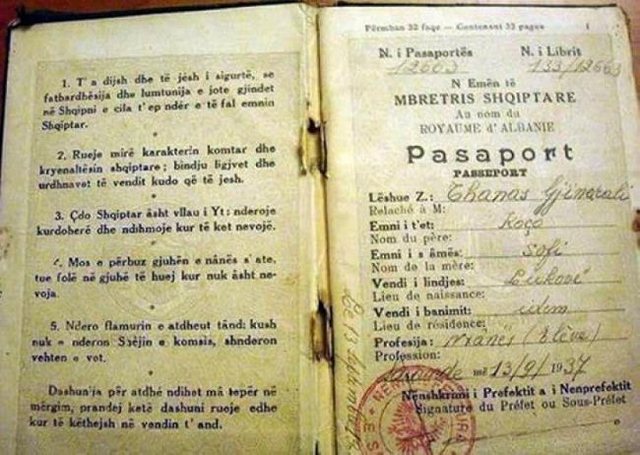 1. T'a dijsh dhe të jësh i sigurtë, se
fatbardhësija dhe lumtunija e jote gjindet
në Shqipni e cila t'ep ndër e të fal emnin
Shqiptar.
2. Rueje mirë karakterin komtar dhe
kryenaltësin shqiptare; bindju ligjvet dhe
urdhnavet të vendit kudo që të jesh.
3. Çdo Shqiptar âsht vllau i Yt: nderoje
kurdoherë dhe ndihmoje kur të ket nevojë.
4. Mos e përbuz gjuhën e nânës s'ate,
tue folë në gjuhë të huej kur nuk âsht ne-
voja.
5. Ndero flamurin e atdheut tând: kush
nuk e nderon Shejin e komsis, shnderon
vehten e vet.
Dashunija për atdhé ndihet mâ tepër në
mërgim, prandej ketë dashuni rueje edhe
kur të këthejsh në vendin t'and.
Përmban 32 faqe — Contenant 32 pages 1
N. i Pasaportës N. i Librit
12663 133/12663
N Emën të
MBRETRIS SHQIPTARE
Au nom du
ROYAUME d'ALBANIE
Pasaport
PASSEPORT
Lëshue Z.: Thanas Gjimarali
Relaché à M:
Emni i t'et: Koço
Nom du père:
Emni i s âmës: Sofi
Nom de la mère:
Vendi i lindjes: Lukovë
Lieu de naissance:
Vendi i banimit: idem
Lieu de résidence:
Profesija: nxanës (Elève)
Profession:
Sarandë më 13/9/1937
Nënshkrimi i Prefektit a i Nenprefektit
Signature du Préfet ou Sous-Préfet